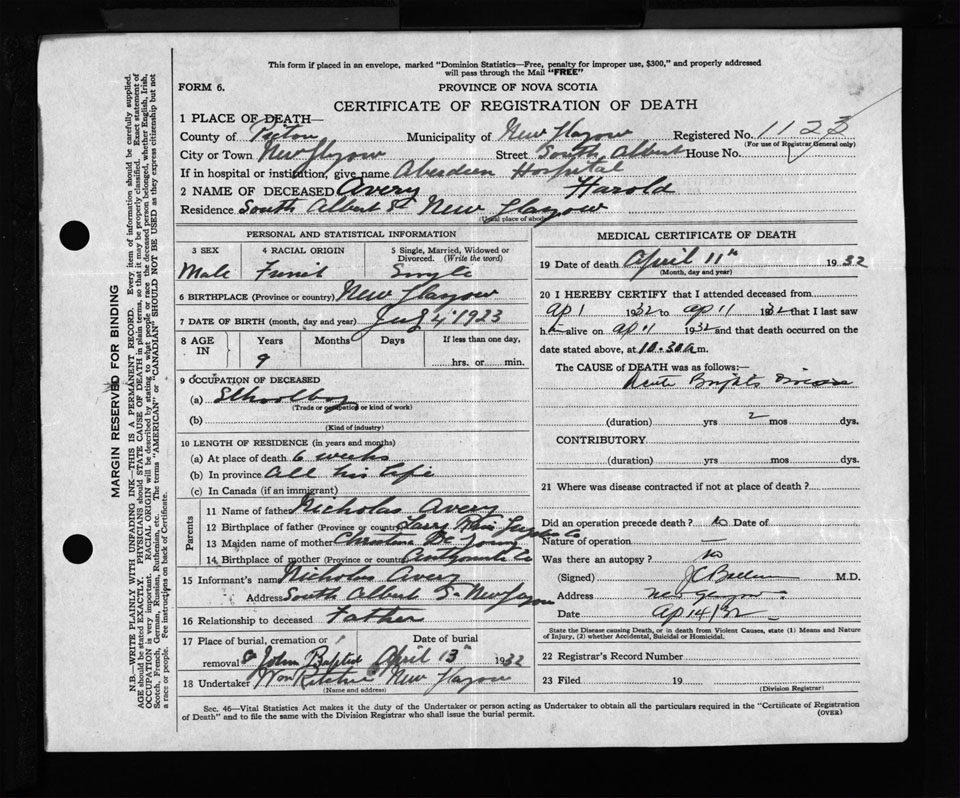 This form if placed in an envelope, marked "Dominion Statistics—Free, penalty for improper use, $300," and properly addressed
will pass through the Mail "FREE"
FORM 6.
PROVINCE OF NOVA SCOTIA
CERTIFICATE OF REGISTRATION OF DEATH
1 PLACE OF DEATH—
County of Pictou Municipality of New Glasgow Registered No. 1123
(For use of Registrar General only)
City or Town New Glasgow Street South Albert House No.
If in hospital or institution, give name Aberdeen Hospital
2 NAME OF DECEASED Avery Harold
Residence South Albert St New Glasgow
(Usual place of abode)
PERSONAL AND STATISTICAL INFORMATION
3 SEX 4 RACIAL ORIGIN 5 Single, Married, Widowed or Divorced. (Write the word)
Male French Single
6 BIRTHPLACE (Province or country) New Glasgow
7 DATE OF BIRTH (month, day and year) 4 1923
8 AGE IN Years Months Days If less than one day,
9 hrs. or min.
9 OCCUPATION OF DECEASED
(a) Schoolboy
(Trade or occupation or kind of work)
(b)
(Kind of industry)
10 LENGTH OF RESIDENCE (in years and months)
(a) At place of death 6 weeks
(b) In province All his life
(c) In Canada (if an immigrant)
Parents
11 Name of father Nicholas Avery
12 Birthplace of father (Province or country)
13 Maiden name of mother Christina De Young
14 Birthplace of mother (Province or country)
15 Informant's name Nicholas Avery
Address South Albert S- New Glasgow
16 Relationship to deceased Father
17 Place of burial, cremation or Date of burial
removal John Baptist April 13th 1932
18 Undertaker Wm Ritchie New Glasgow
(Name and address)
MEDICAL CERTIFICATE OF DEATH
19 Date of death April 11th 1932
(Month, day and year)
20 I HEREBY CERTIFY that I attended deceased from
Ap 1 1932 to ap 11 1932 that I last saw
h alive on ap 11 1932 and that death occurred on the
date stated above, at 10.30 a m.
The CAUSE of DEATH was as follows:—
Acute Brights Disease
(duration) yrs 2 mos dys.
CONTRIBUTORY
(duration) yrs mos dys.
21 Where was disease contracted if not at place of death?
Did an operation precede death? no Date of
Nature of operation —
Was there an autopsy? no
(Signed) M.D.
Address New Glasgow
Date Ap 14/32
State the Disease causing Death, or in death from Violent Causes, state (1) Means and Nature
of Injury, (2) whether Accidental, Suicidal or Homicidal.
22 Registrar's Record Number
23 Filed 19
(Division Registrar)
Sec. 46—Vital Statistics Act makes it the duty of the Undertaker or person acting as Undertaker to obtain all the particulars required in the "Certificate of Registration
of Death" and to file the same with the Division Registrar who shall issue the burial permit.
(OVER)
MARGIN RESERVED FOR BINDING
N.B.—WRITE PLAINLY WITH UNFADING INK—THIS IS A PERMANENT RECORD. Every item of information should be carefully supplied.
AGE should be stated EXACTLY. PHYSICIANS should STATE CAUSE OF DEATH in plain terms, so that it may be properly classified. Exact statement of
OCCUPATION is very important. RACIAL ORIGIN will be described by stating to what people or race the deceased person belonged, whether English, Irish,
Scotch, French, German, Russian, Ruthenian, etc. The terms "AMERICAN" or "CANADIAN" SHOULD NOT BE USED as they express citizenship but not
a race or people. See instructions on back of Certificate.